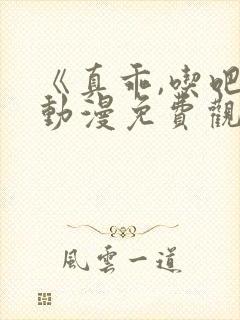 《真乖,喫吧
動漫免費觀
風雲一道